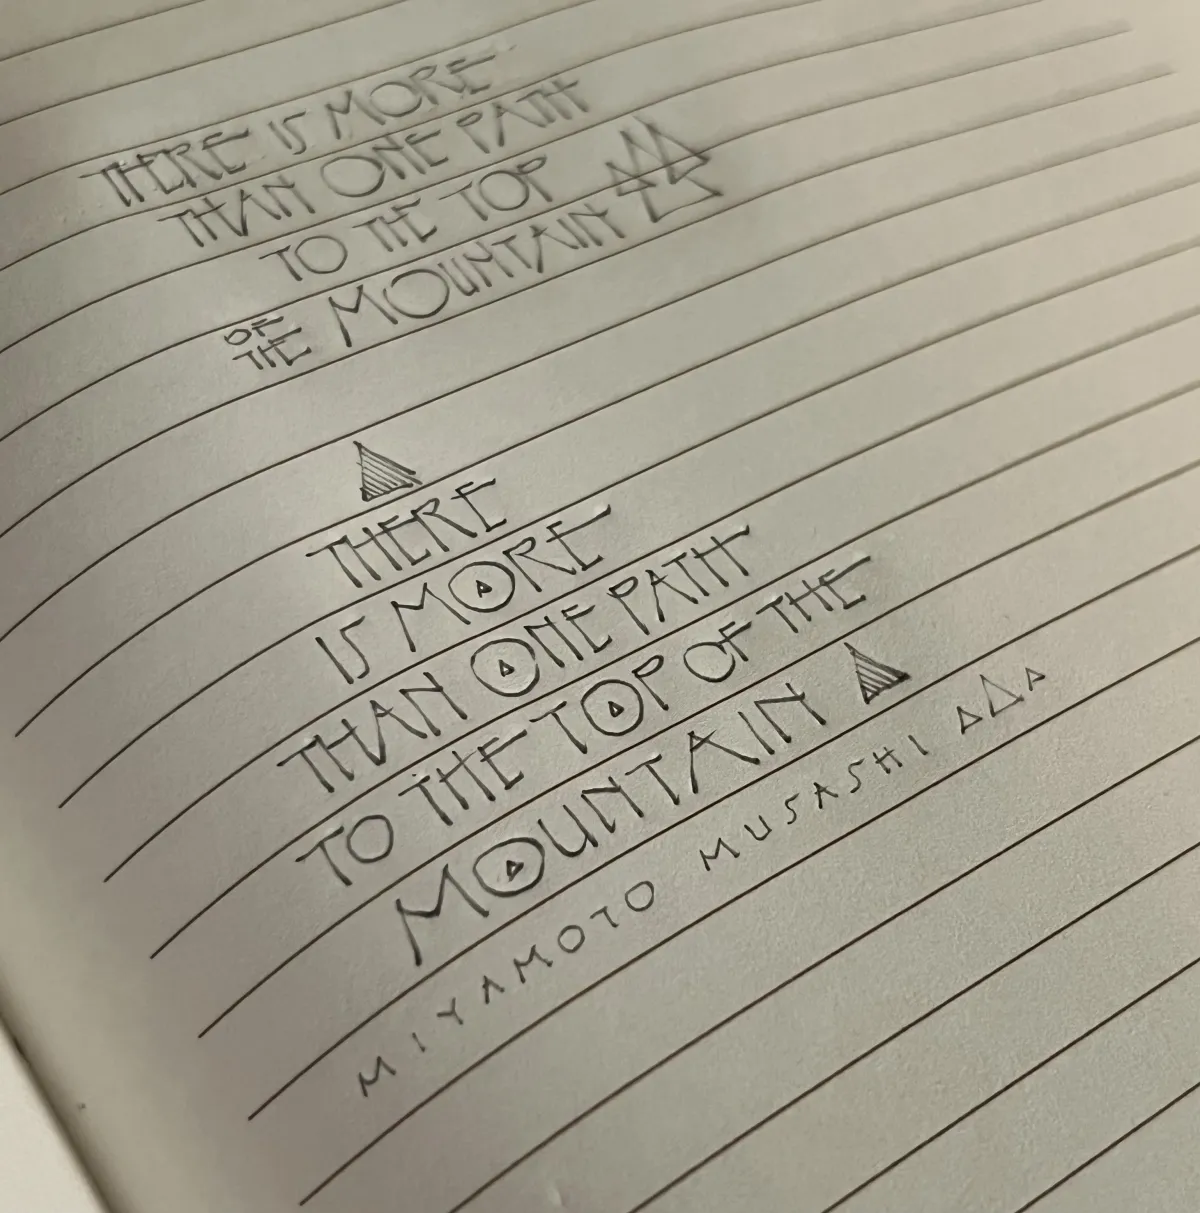 THERE IS MORE
THAN ONE PATH
TO THE TOP
OF THE MOUNTAIN
THERE
IS MORE
THAN ONE PATH
TO THE TOP OF THE
MOUNTAIN
MIYAMOTO MUSASHI